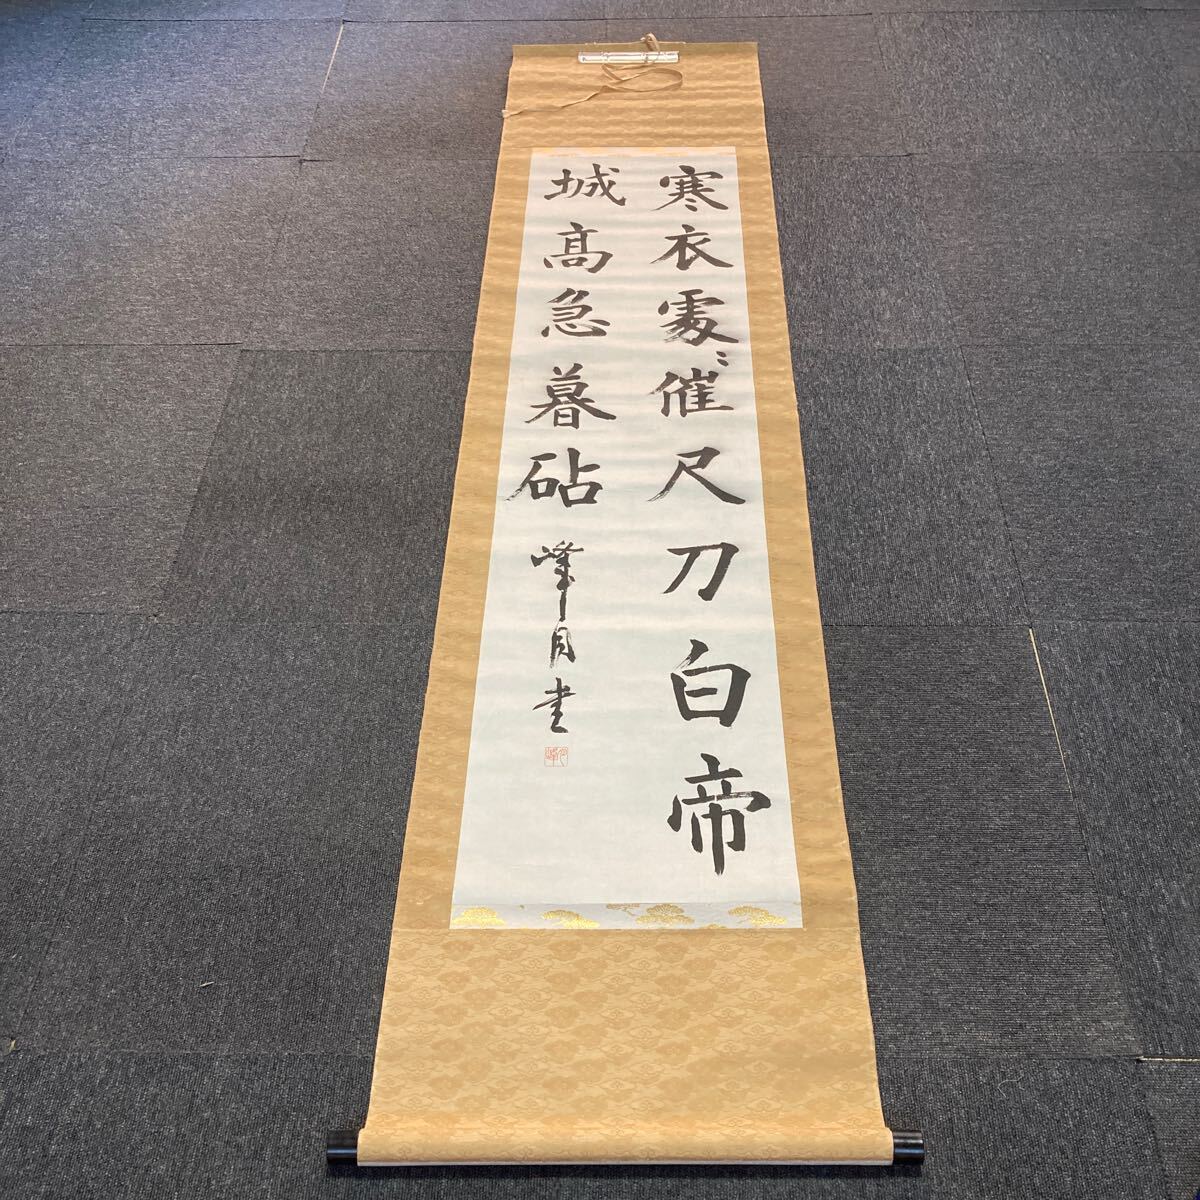 寒衣處〻催尺刀白帝
城髙急暮砧
峰月書